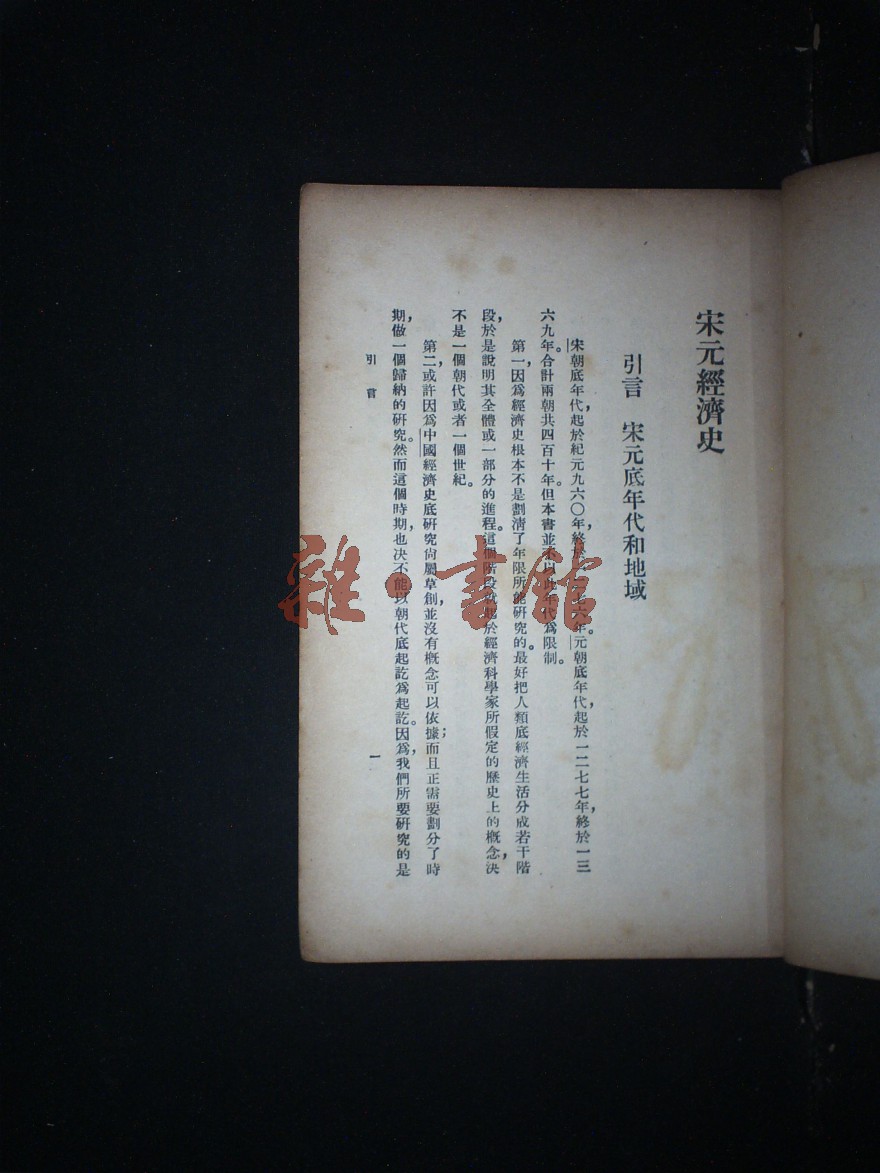 宋元經濟史
引言　宋元底年代和地域
宋朝底年代，起於紀元九六〇年，終於一二七六年。元朝底年代，起於一二七七年，終於一三
六九年。合計兩朝共四百十年。但本書並不以此年代爲限制。
第一，因爲經濟史根本不是劃清了年限所能研究的。最好把人類底經濟生活分成若干階
段，於是說明其全體或一部分的進程。這個階段就起於經濟科學家所假定的歷史上的概念，決
不是一個朝代或者一個世紀。
第二，或許因爲中國經濟史底研究尙屬草創，並沒有概念可以依據；而且正需要劃分了時
期，做一個歸納的研究。然而這個時期，也決不能以朝代底起訖爲起訖。因爲，我們所要研究的是
引言
一
雜·書館